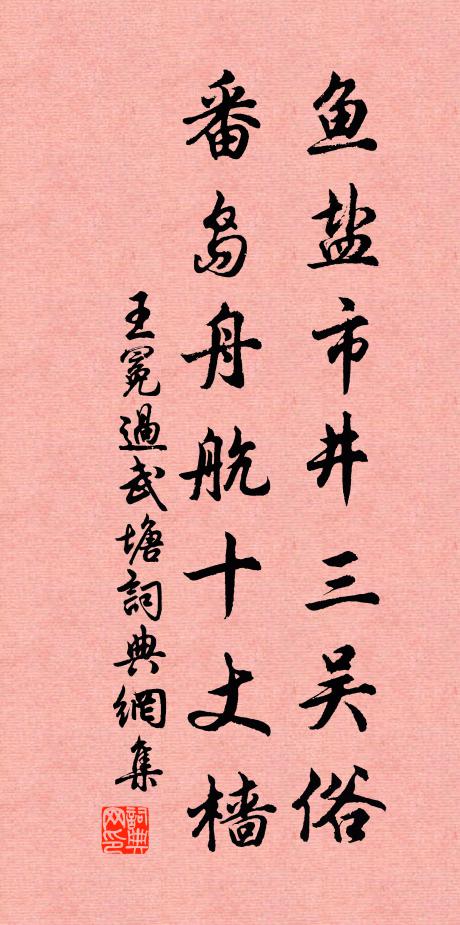 鱼盐市井三吴俗
番岛舟航十丈樯
王冕過武塘詞典網集
詞典网印